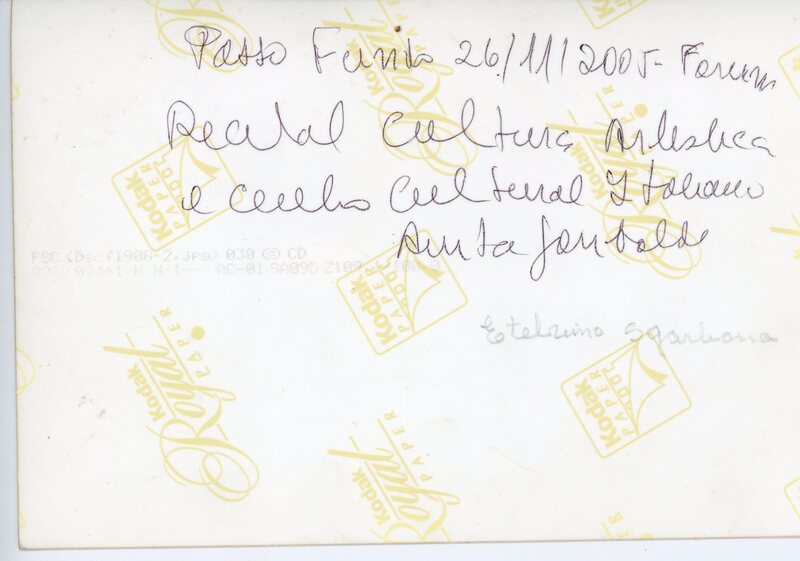 Passo Fundo 26/11/2005 - Forum
Recital Cultura Artística
e Centro Cultural Italiano
Anita Garibaldi
PSC (Dscf1908-2.jpg) 030 CD
N N-1-- AC-01 SA095
Etelvino Sgarbossa
Kodak Royal PAPER
Kodak PAPER
Kodak PAPER
Kodak PAPER
Kodak Royal PAPER
Kodak Royal PAPER